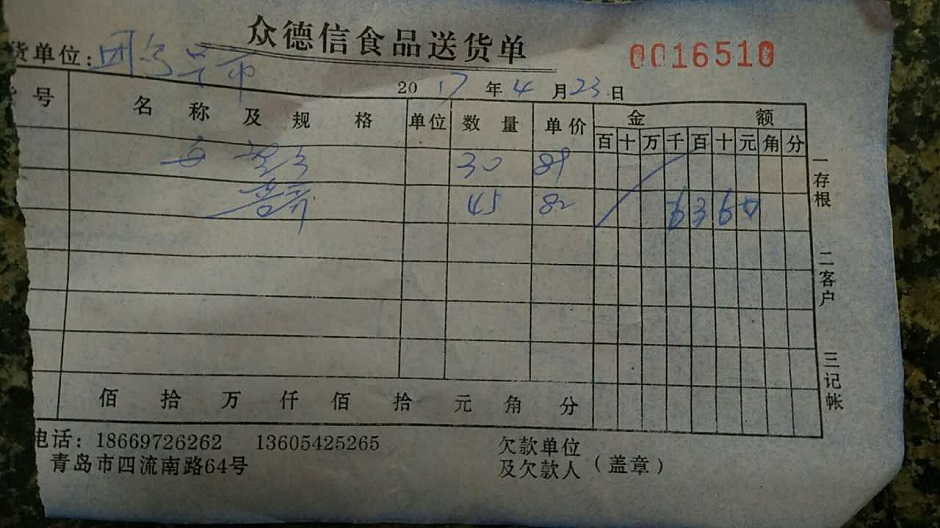 众德信食品送货单
0016510
货单位:
2017年4月23日
号 名称及规格 单位 数量 单价 金额
百 十 万 千 百 十 元 角 分
30 89
45 82 6360
佰 拾 万 仟 佰 拾 元 角 分
一存根
二客户
三记帐
电话: 18669726262 13605425265
青岛市四流南路64号
欠款单位
及欠款人 (盖章)